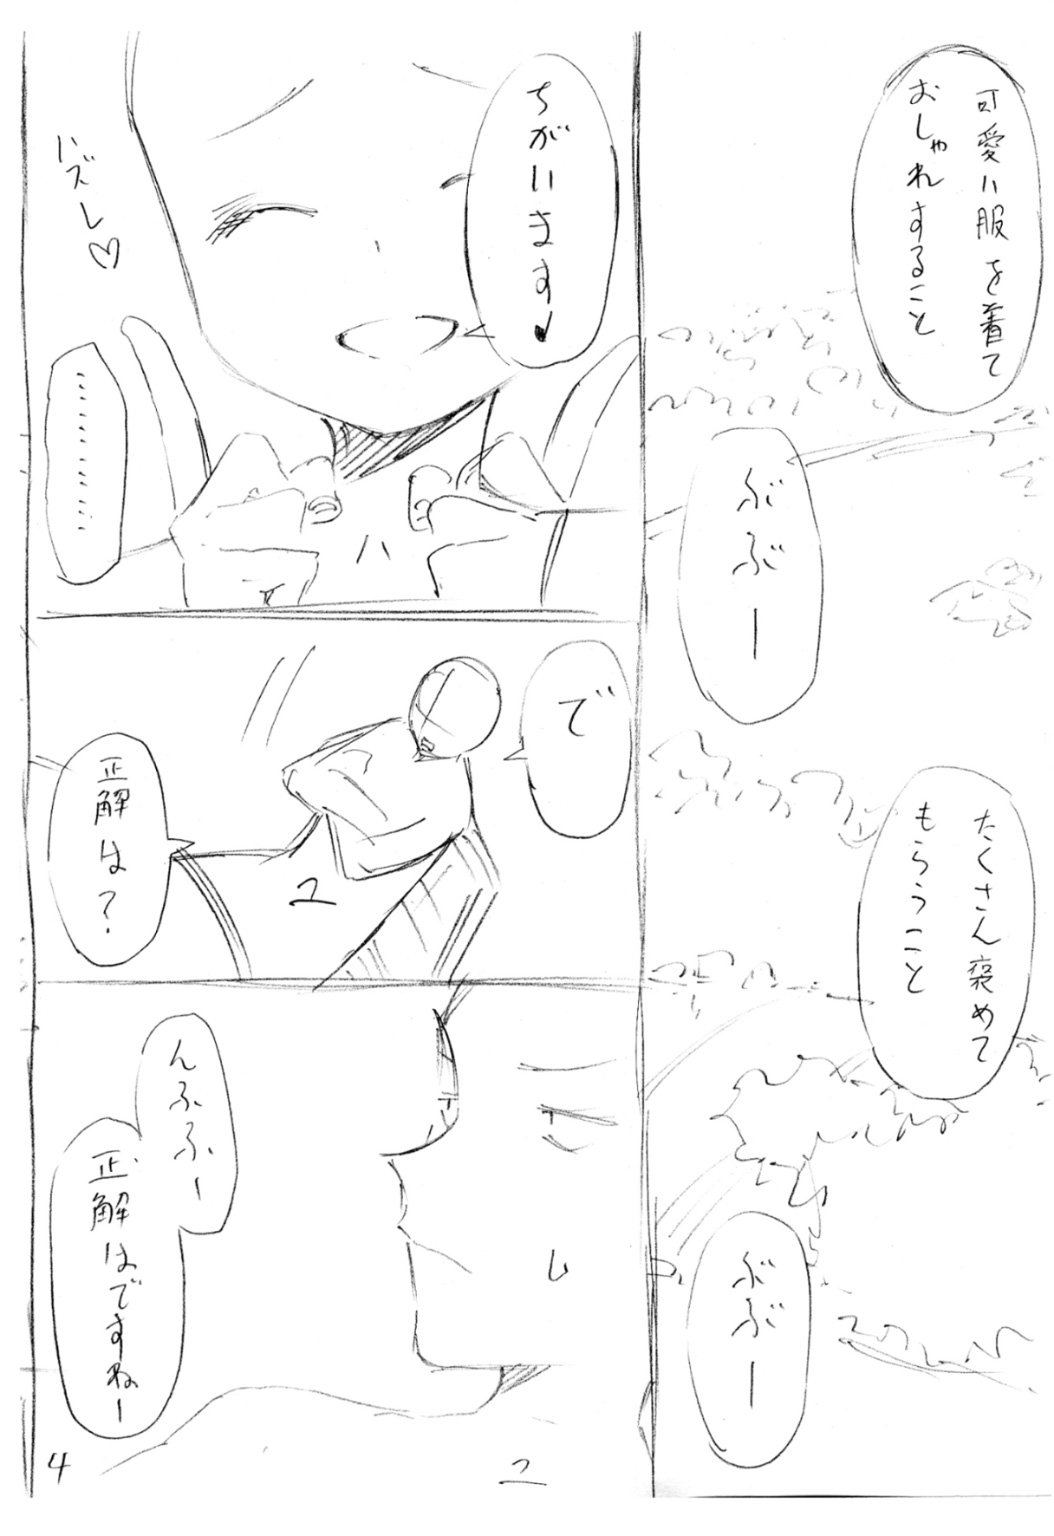 可愛い服を着て
おしゃれすること
ぶぶー
たくさん褒めて
もらうこと
ぶぶー
ちがいます♪
ハズレ♡
…………
で
正解は?
ユ
んふふー
正解はですねー
4
ユ